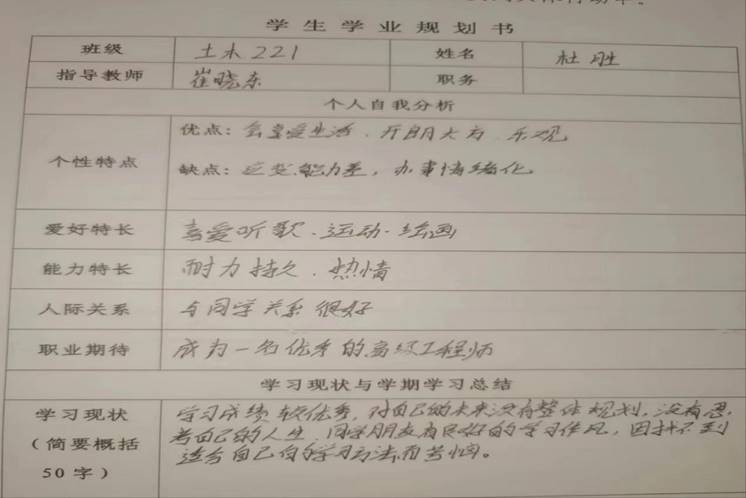 学生学业规划书
班级 土木221 姓名 杜胜
指导教师 崔晓东 职务
个人自我分析
个性特点 优点：喜爱生活、开朗大方、乐观
缺点：应变能力差，办事情绪化
爱好特长 喜爱听歌·运动·绘画
能力特长 耐力持久、热情
人际关系 与同学关系很好
职业期待 成为一名优秀的高级工程师
学习现状与学期学习总结
学习现状
（简要概括
50字）
学习成绩较优秀，对自己的未来没有整体规划，没有思
考自己的人生，同学朋友有良好的学习作风，因找不到
适合自己的学习方法而苦恼。